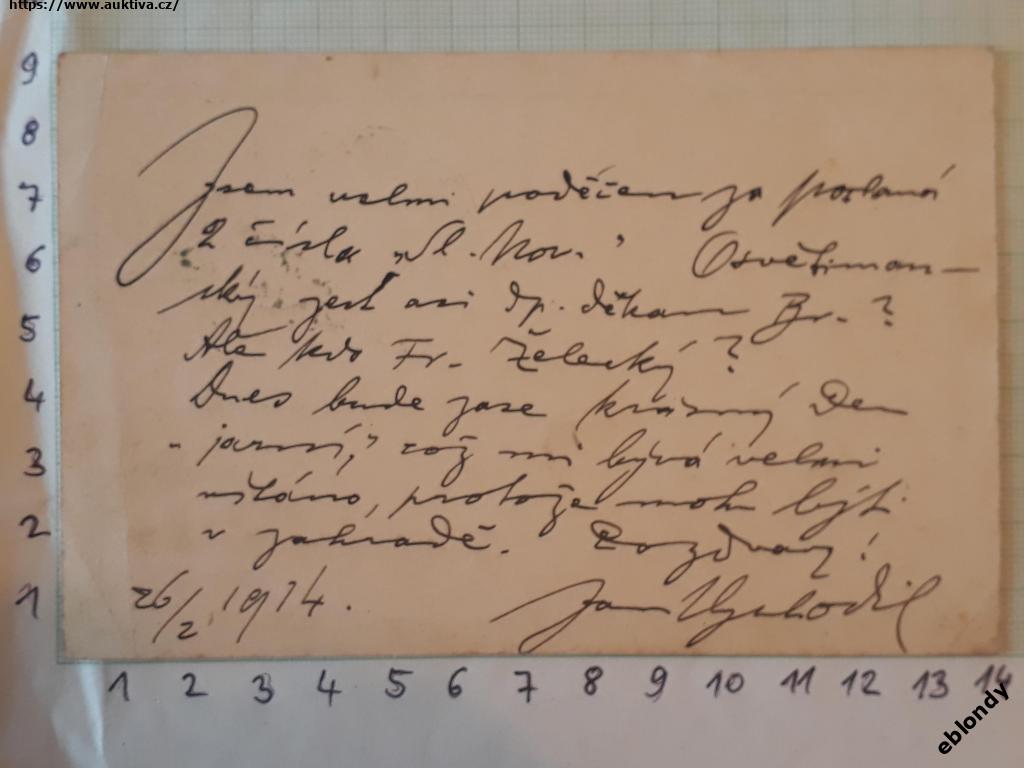 https://www.auktiva.cz/
Jsem velmi poděčen za poslaná
2 čísla „Sl. Nov.” Osvětiman-
ský jest asi dp. děkan Br. ?
Ale kdo Fr. Želecký ?
Dnes bude zase krásný den
„jarní,” což mi bývá velmi
vítáno, protože mohu býti
v zahradě. Pozdravy !
26/2 1914. Jan Vyhlídal
9
8
7
6
5
4
3
2
1
1 2 3 4 5 6 7 8 9 10 11 12 13 14
eblondy